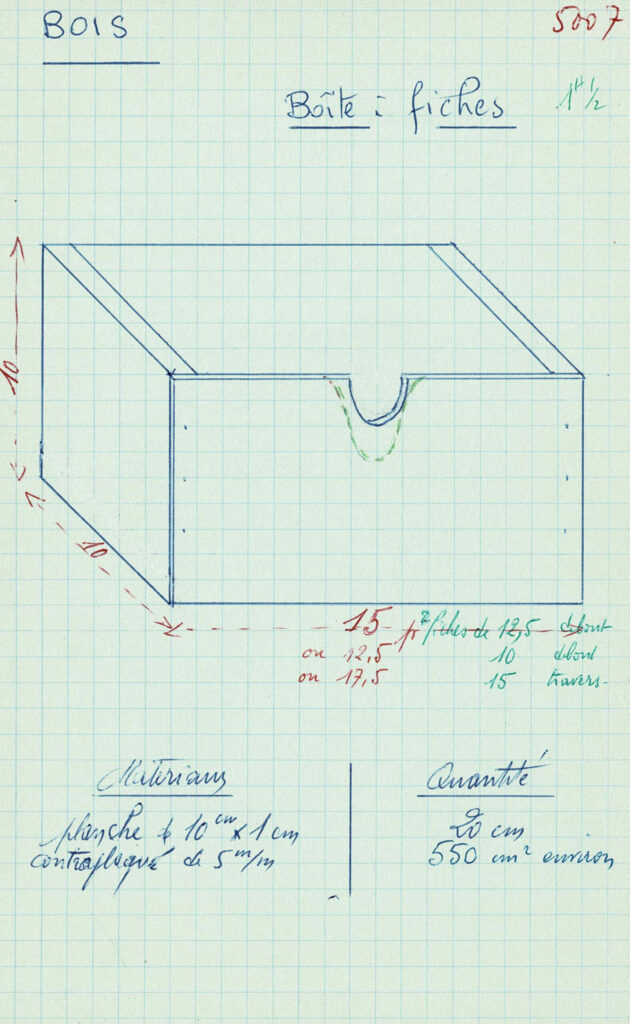 BOIS
5007
Boîte à fiches
1H 1/2
10
10
15 pr fiches de 12,5 debout
ou 12,5 10 debout
ou 17,5 15 travers.
Matériaux
planche de 10 cm x 1 cm
contreplaqué de 5 m/m
Quantité
20 cm
550 cm² environ